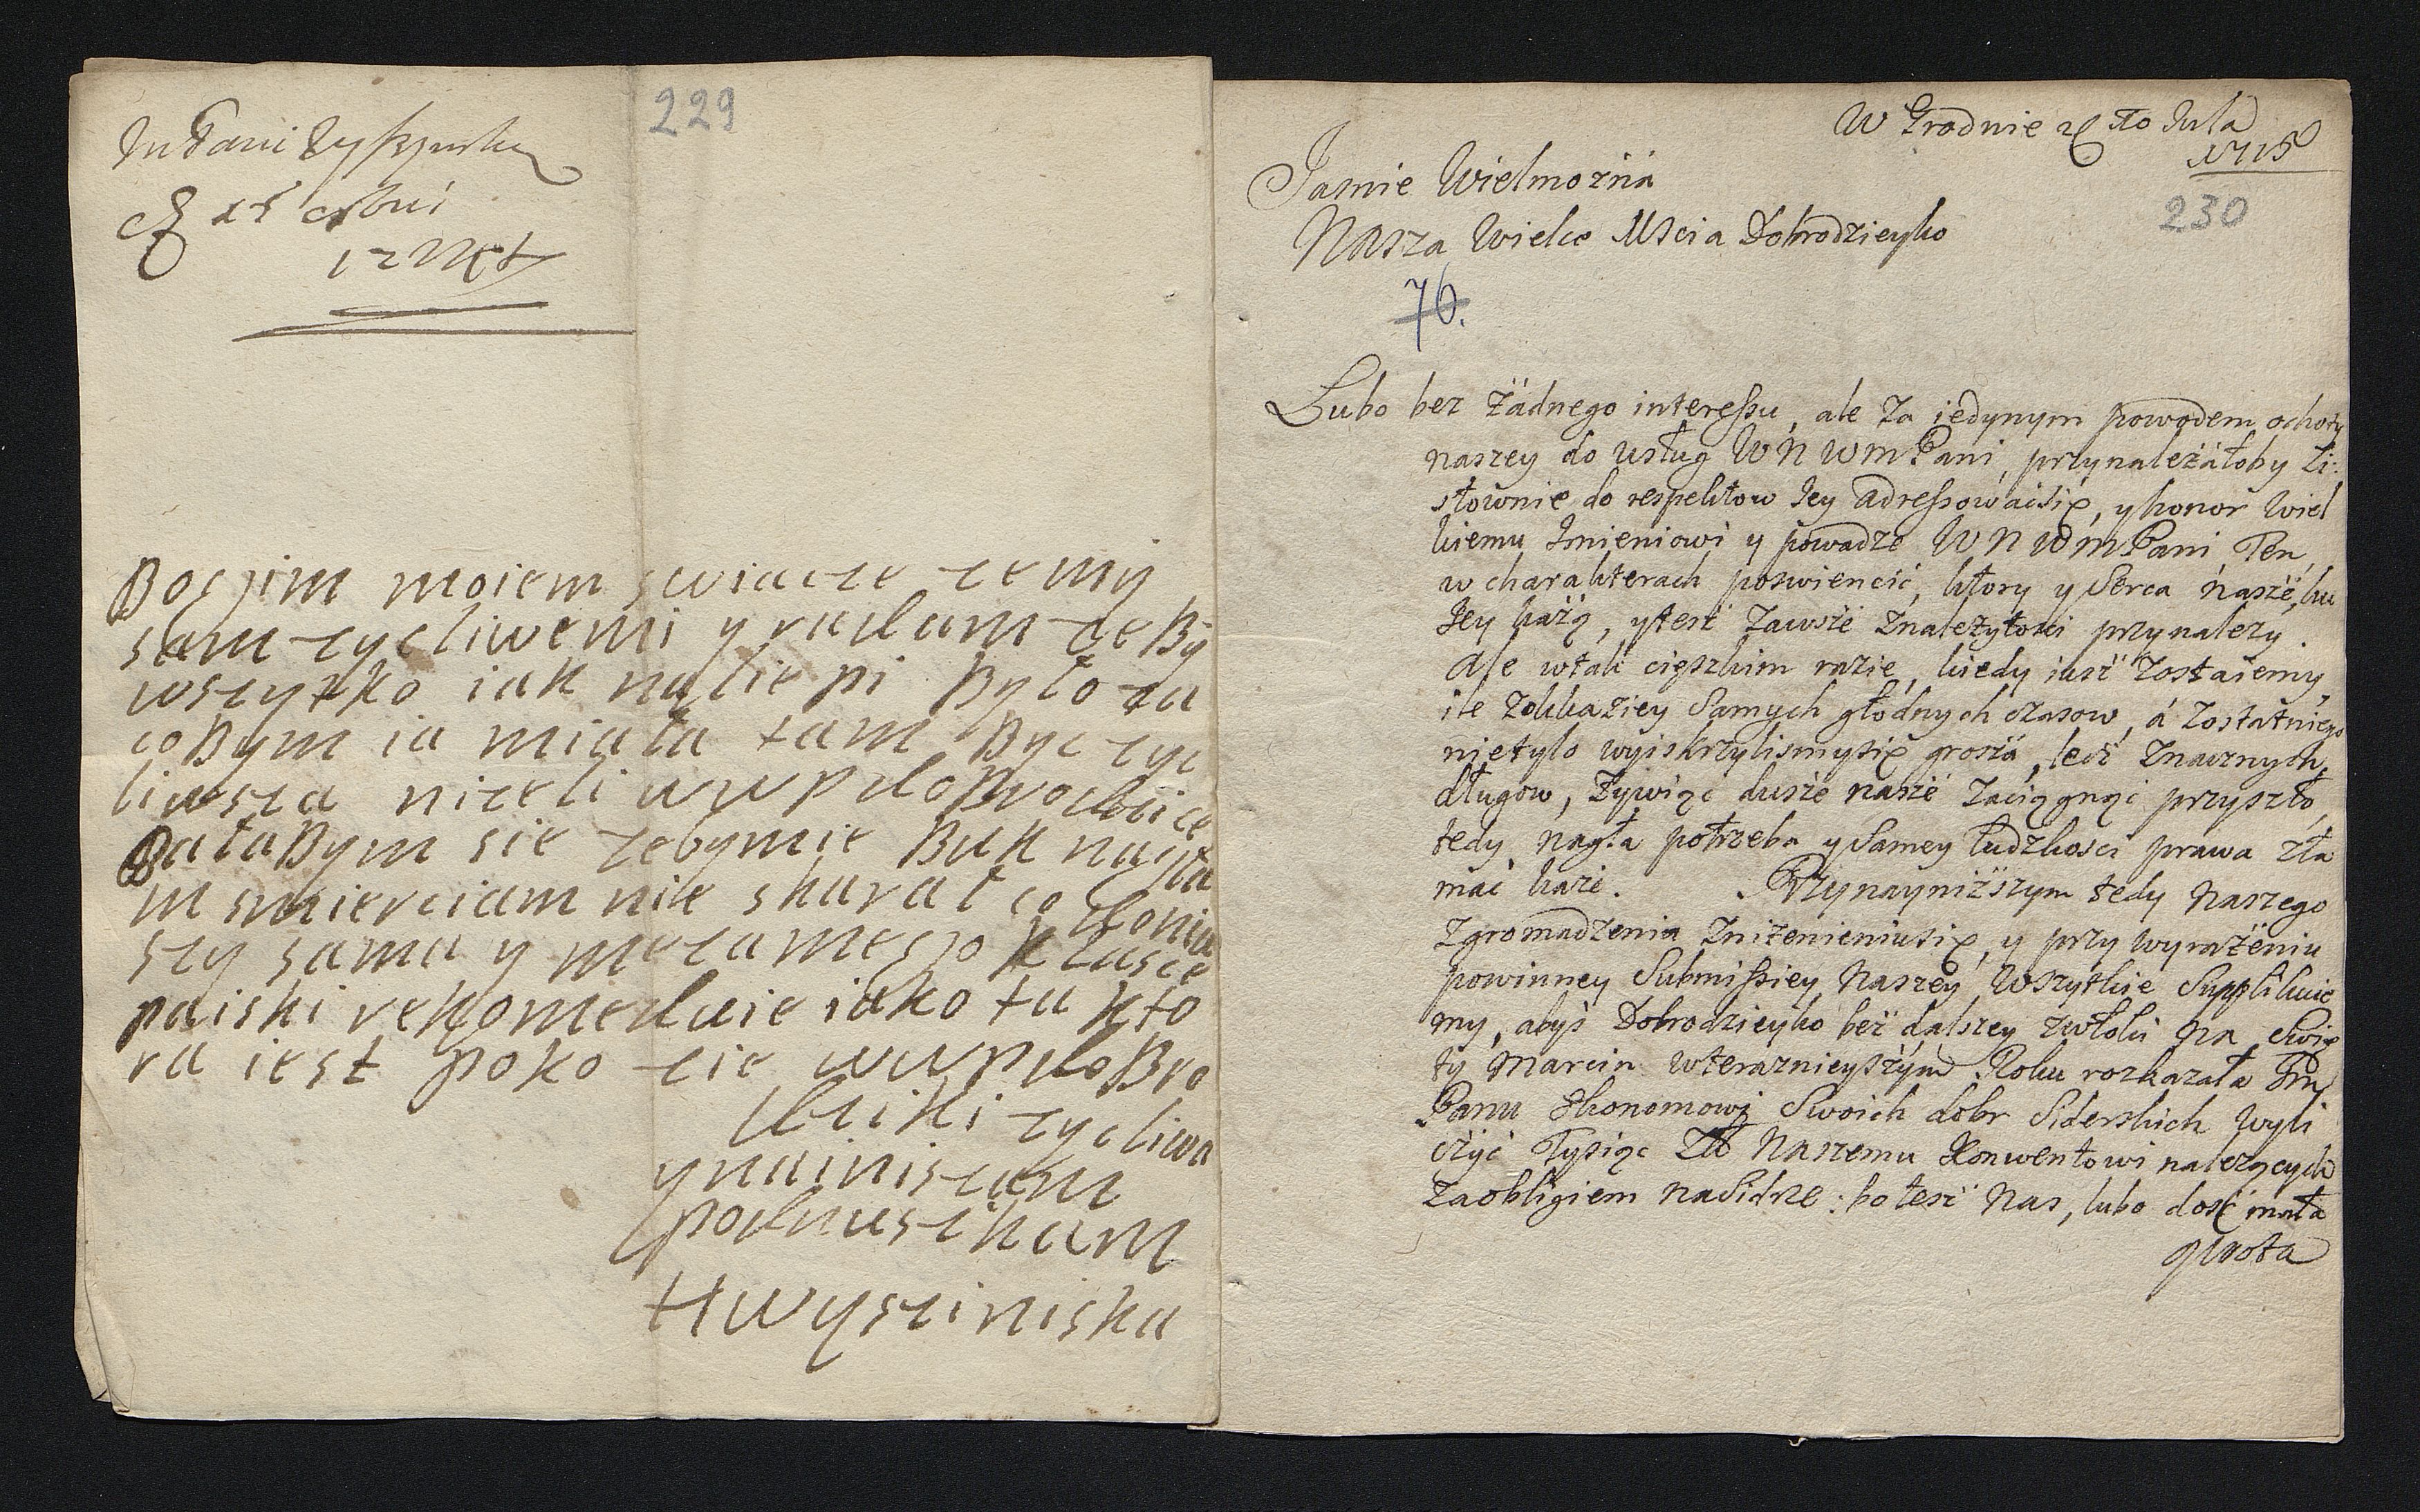 229
Bogiim moiem swiatcze ze mÿ
sam zycliwemi y radam ze By
wszytko iak naliepi Było za
coBym ia miała tam Byc zyc
liwsza nizeli wwpdoBrodziice
BałaBym sie zebymie Buk nagła
m smierciam nie skarał co
szy sama y mezamego k łasce
paiski rekomeduie iako ta kto
ra iest poko zie wwpdoBro
dziki zycliwa
ynainiszam
podnuszkam
HWysziniska
W Grodnie 10 Jula
1715
230
Jasnie Wielmozná
Nasza Wielce Mscia Dobrodzieyko
76.
Lubo bez żádnego interessu, ale za iedynym powodem ochoty
naszey do usług W N W m Pani, przynależáłoby Li:
stownie do respektow Jey adressowaćsię, y honor Wiel
kiemu Imieniowi y powadze W N W m Pani Ten
w charakterach poswiencić, ktory y Serca násze, ku
Jey każą, y tesz zawsze znależytości przynalezy.
Ale wtak cięszkim razie, kiedy iusz zostaiemy
ile zokkaziey Samych głodnych czasow, á zostatniego
nietylo wyiskrzylismysię grosza, lecz znacznych
długow, żywiąc dusze nasze zaciągnąć przyszło,
tedy nagła potrzeba y Samey ludzkosci prawa zła
mać każe. Przynayniższym tedy Naszego
Zgromadzenia zniżenieniusię, y przy wyrażeniu
powinney Submissiey Naszey Wszytkie Supplikuie
my, abyś Dobrodzieyko bez dalszey zwłoki na Swię
ty Marcin wteraznieyszym Roku rozkazała Jm
Panu Ekonomowi Swoich dobr Siderskich wyli
czyć Tysiąc Zł Naszemu Konwentowi nalezących
zaobligiem naSidrze: bo tesz Nas, lubo dosć mała
qwota